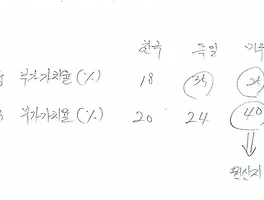 한국 독일
부가가치율(%) 18 35 25
부가가치율(%) 20 24 40
원산지